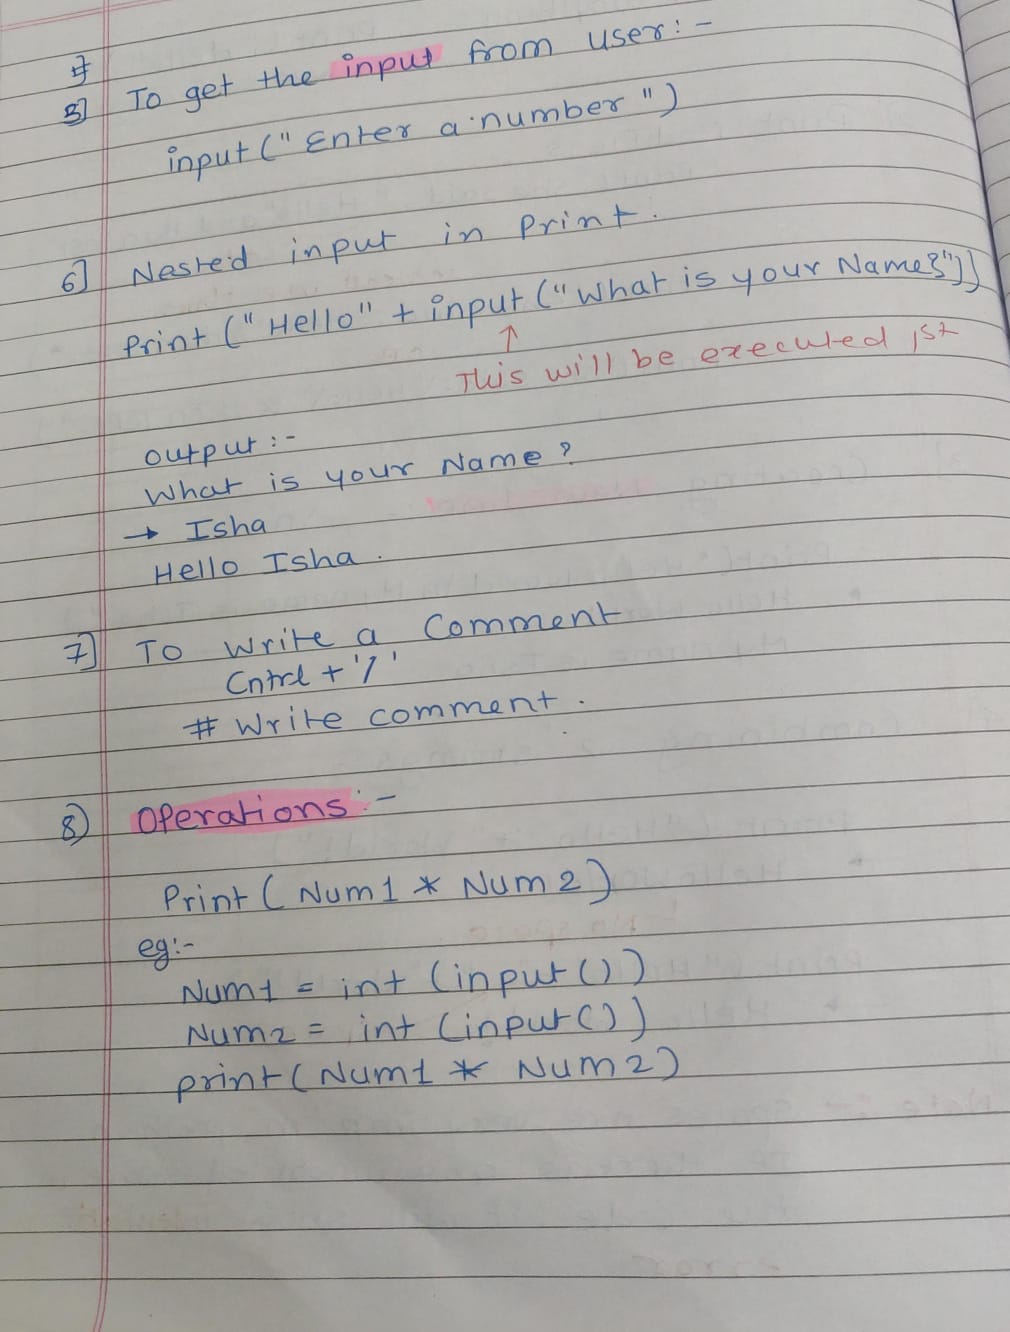 5] To get the input from user:-
input ("Enter a number")
6] Nested input in Print.
Print ("Hello" + input ("What is your Name?"))
↑
This will be executed 1st
Output :-
What is your Name?
→ Isha
Hello Isha.
7] To Write a Comment
Cntrl + '/'
# Write comment.
8) Operations:-
Print ( Num1 * Num2)
eg:-
Num1 = int (input ())
Num2 = int (input ())
print ( Num1 * Num2)